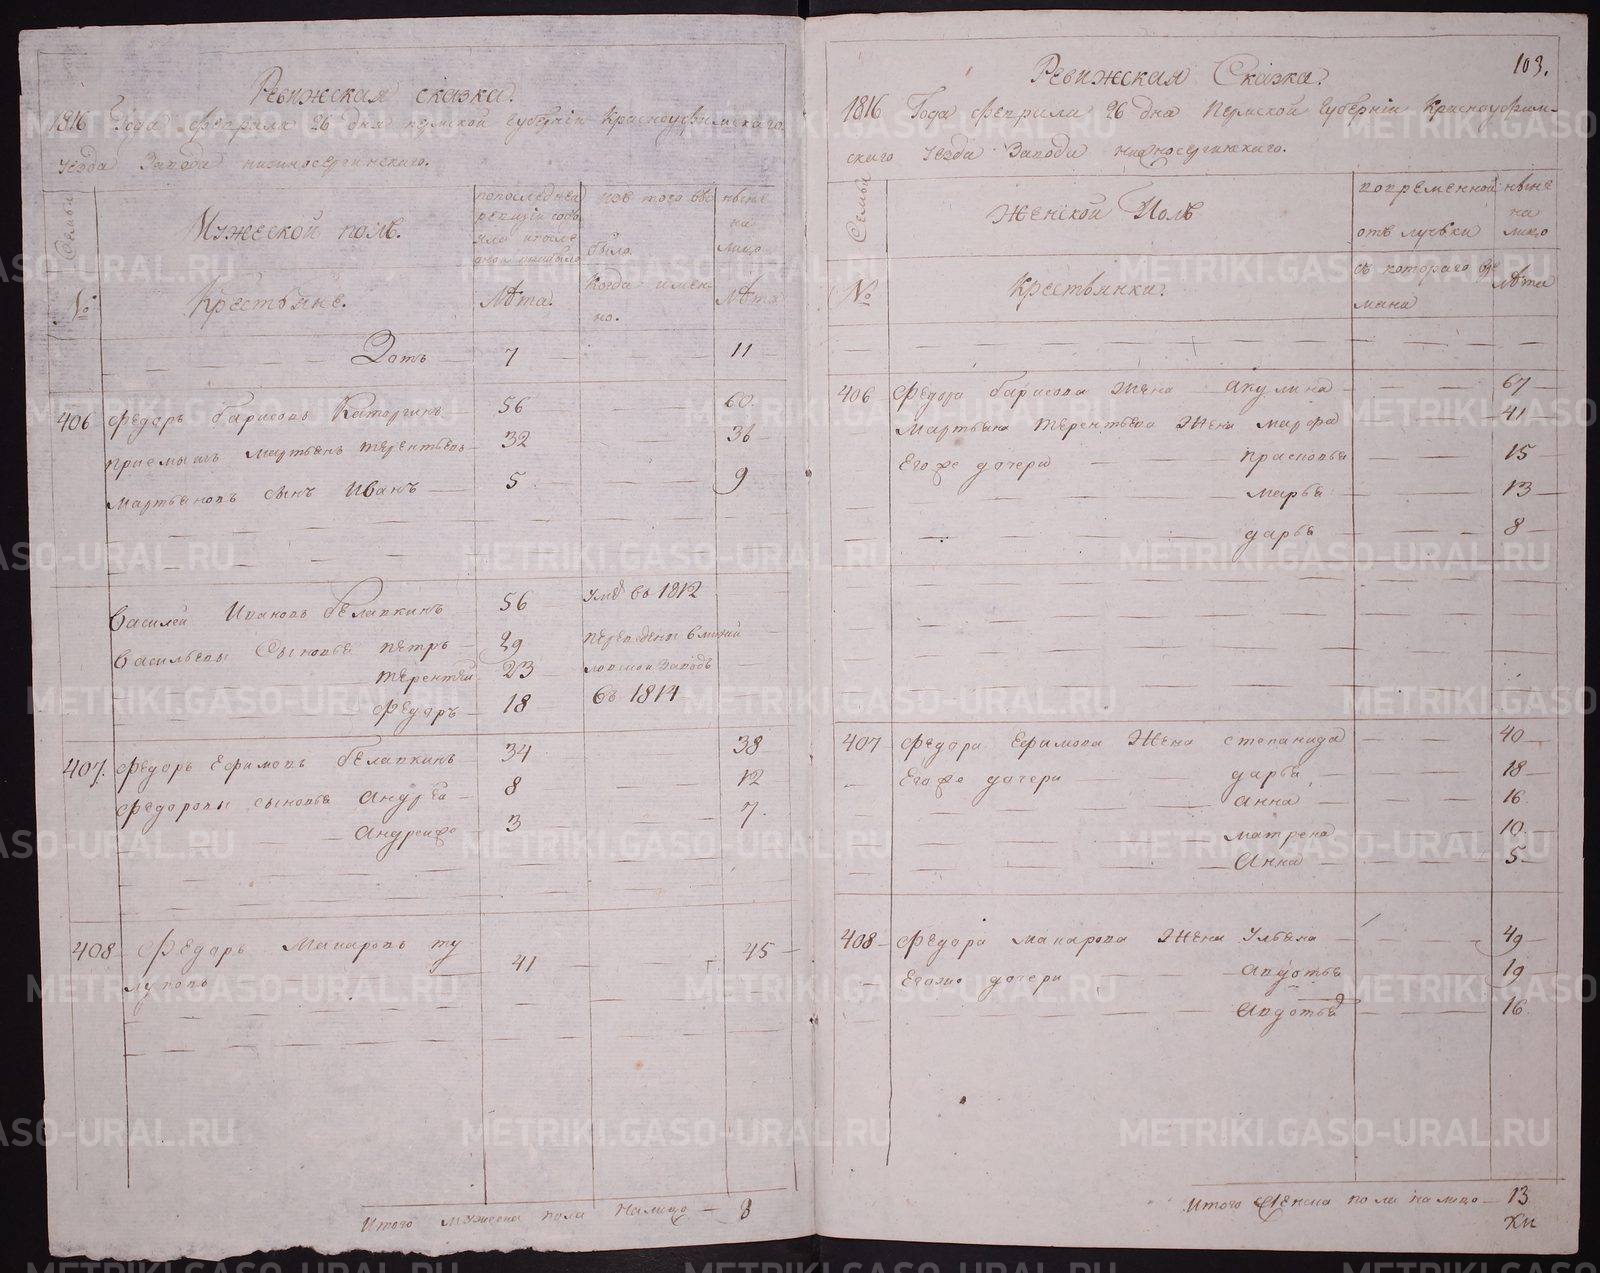 Ревижская сказка.
1816 Года февраля 26 дня пермской Губернiи Красноуфимскаго
уезда Завода нижносергинскаго.
Семьи
№
Мужеской полъ.
Крестьяне.
попоследней
ревизiи состо
яло ипосле
оной прибыло
Лѣта.
изъ того выбыло.
Когда имен
но.
ныне
на
лицо
Лѣта
Зотъ 7 11
406 федоръ барисовъ Каторгинъ 56 60.
приемышъ мартьенъ терентьевъ 32 36
мартьеновъ сынъ Иванъ 5 9
Василей Ивановъ бѣлавкинъ 56 умѣ въ 1812
Васильевы Сыновьѣ петръ 29 переведены в михай
терентей 23 ловской Заводъ
федоръ 18 въ 1814
407. федоръ Ефимовъ бѣлавкинъ 34 38
федоровы сыновьѣ андрѣа 8 12
андреиже 3 7.
408 Федоръ Макаровъ ту 41 45
луповъ
Итого мужеска пола налицо 8
103.
Ревижская Сказка.
1816 Года февраля 26 дна Пермской Губернiи Красноуфим-
скаго уезда Завода нижносергинскаго.
Семьи
№
Женской Полъ
Крестьянки.
вовременной
отълучьки
съ котораго вре
мяна
ныне
на
лицо
лѣта
406 федора барисова Жена акулина 67
мартьена терентьева Жена марфа 41
Егоже дочери прасковьѣ 15
марьѣ 13
дарьѣ 8
407 федора Ефимова Жена степанида 40
Егоже дочери дарьѣ 18
анна 16
матрена 10.
анна 5
408 федора макарова Жена Ульѣна 49
Егоже дочери авдотьѣ 19
авдотьѣ 16
Итого Женска пола налицо 13
METRIKI.GASO-URAL.RU